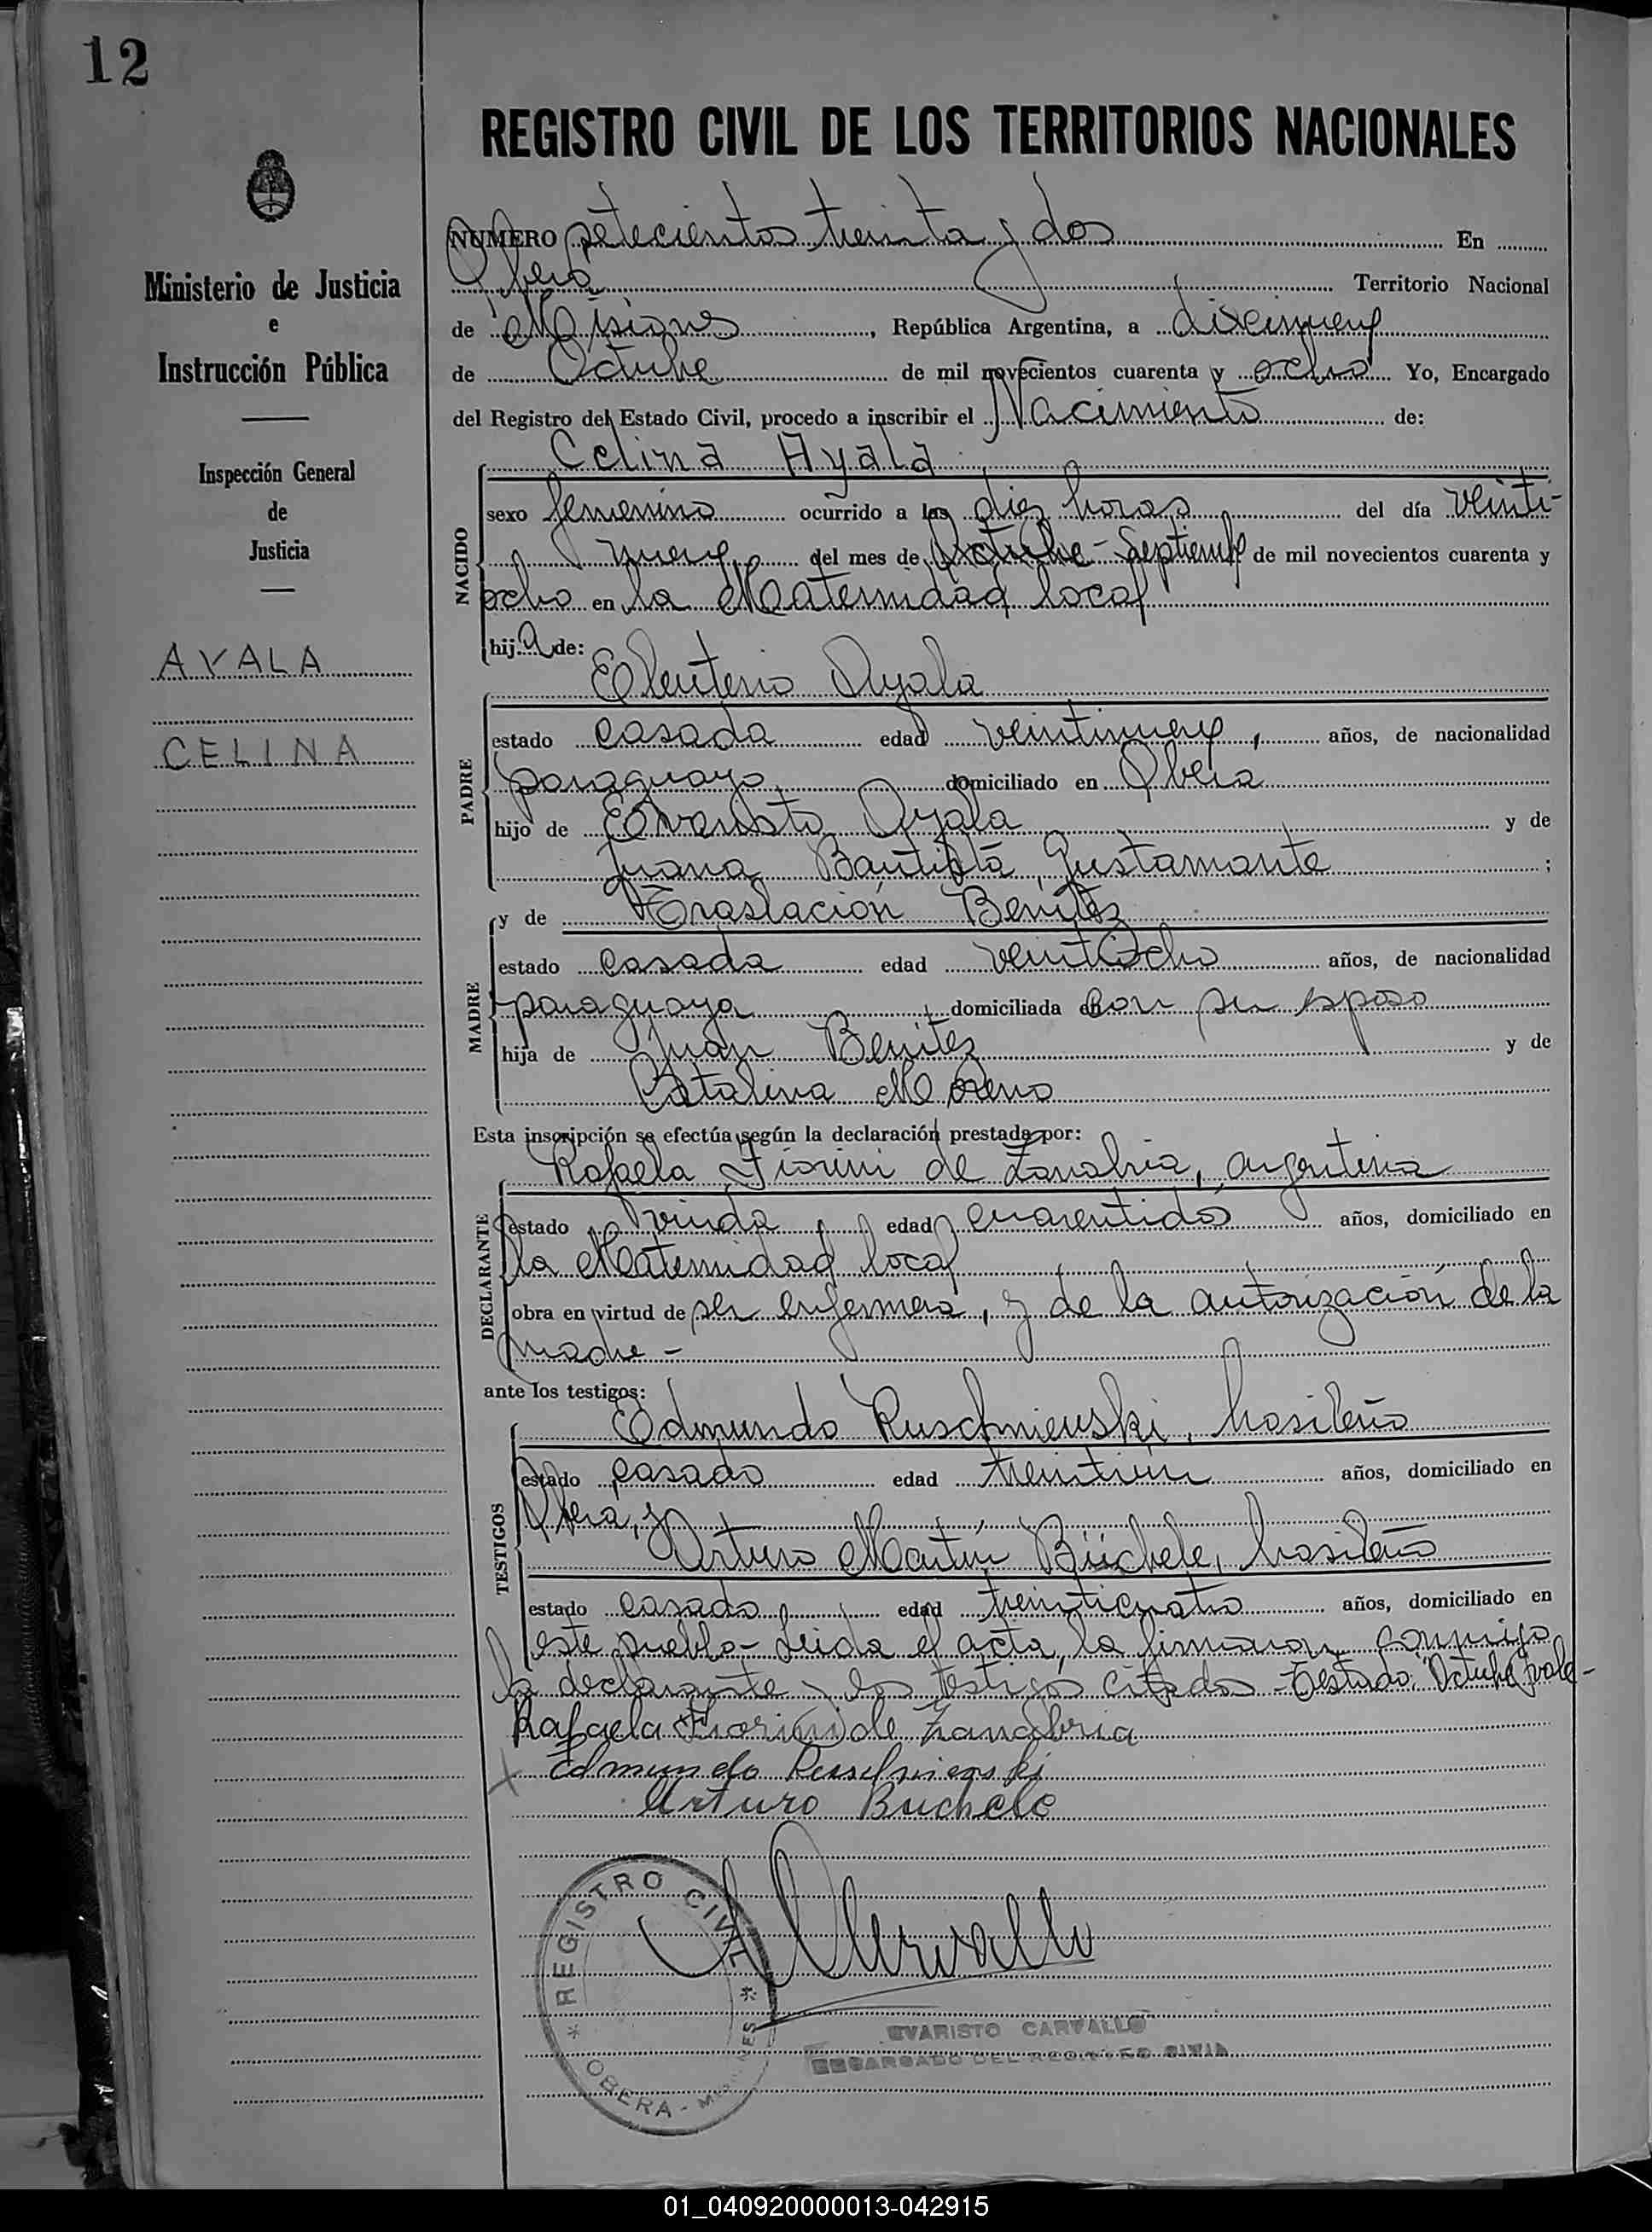 12
REGISTRO CIVIL DE LOS TERRITORIOS NACIONALES
Ministerio de Justicia
e
Instrucción Pública
Inspección General
de
Justicia
AYALA
CELINA
NUMERO setecientos treinta y dos En
Oberá Territorio Nacional
de Misiones, República Argentina, a diecinueve
de Octubre de mil novecientos cuarenta y ocho Yo, Encargado
del Registro del Estado Civil, procedo a inscribir el Nacimiento de:
Celina Ayala
NACIDO
sexo femenino ocurrido a las diez horas del día veinti-
nueve del mes de Octubre - Septiembre de mil novecientos cuarenta y
ocho en la Maternidad local
hija de:
Eleuterio Ayala
PADRE
estado casada edad veintinueve, años, de nacionalidad
paraguayo domiciliado en Oberá
hijo de Evaristo Ayala y de
Juana Bautista Gustamante ;
y de Traslación Benítez
MADRE
estado casada edad veintiocho años, de nacionalidad
paraguaya domiciliada en con su esposo
hija de Juan Benítez y de
Catalina Moreno
Esta inscripción se efectúa según la declaración prestada por:
Rafaela Fiorini de Zanabria, argentina
DECLARANTE
estado viuda edad cuarentidós años, domiciliado en
la Maternidad local
obra en virtud de ser enfermera, y de la autorización de la
madre -
ante los testigos:
Edmundo Ruschnieuski, brasileño
TESTIGOS
estado casado edad treintiún años, domiciliado en
Oberá, y
Arturo Martín Büchele, brasileño
estado casado edad treinticuatro años, domiciliado en
este pueblo - Leida el acta, la firmaron conmigo
la declarante y los testigos citados - Testado: "Octubre" vale -
Rafaela Fiorini de Zanabria
Edmundo Ruschnienski
Arturo Buchele
REGISTRO CIVIL
OBERA - MISIONES
EVARISTO CARVALLO
ENCARGADO DEL REGISTRO CIVIL
01_040920000013-042915